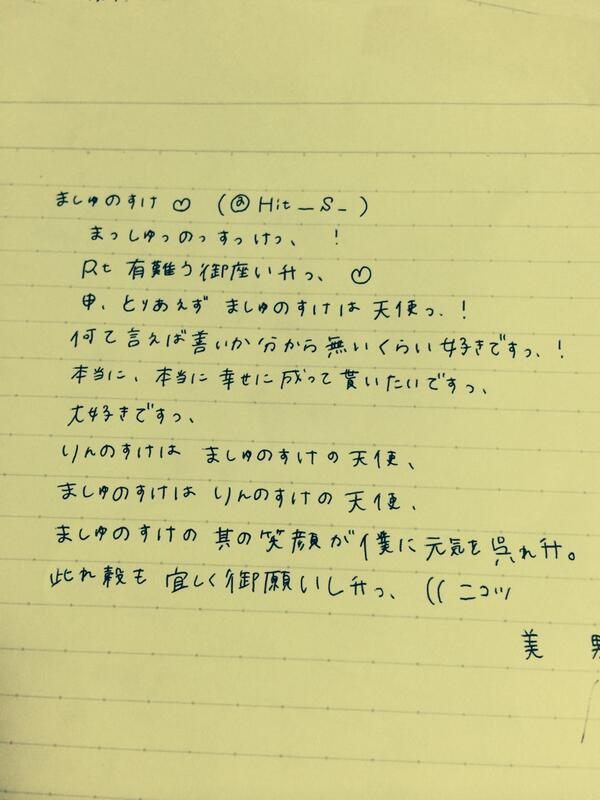 ましゅのすけ♡ (@Hit_S_)
まっしゅっのっすっけっ、!
Rt 有難う御座い升っ、♡
申、とりあえず ましゅのすけは 天使っ、!
何て言えば善いか分から無いくらい好きですっ、!
本当に、本当に幸せに成って貰いたいですっ、
大好きですっ、
りんのすけは ましゅのすけの天使、
ましゅのすけは りんのすけの 天使、
ましゅのすけの 其の笑顔が僕に元気を呉れ升。
此れ穀も 宜しく御願いし升っ、((ニコッ
美 男